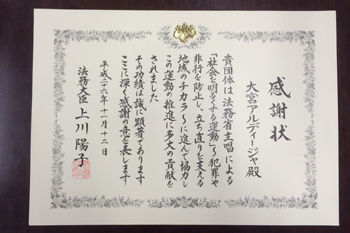 感謝状
大宮アルディージャ殿
貴団体は法務省主唱による
「社会を明るくする運動」～犯罪や
非行を防止し、立ち直りを支える
地域のチカラ～に進んで協力し
この運動の推進に多大の貢献を
されました
その功績は誠に顕著であります
ここに深く感謝の意を表します
平成二十六年十一月十二日
法務大臣 上川陽子